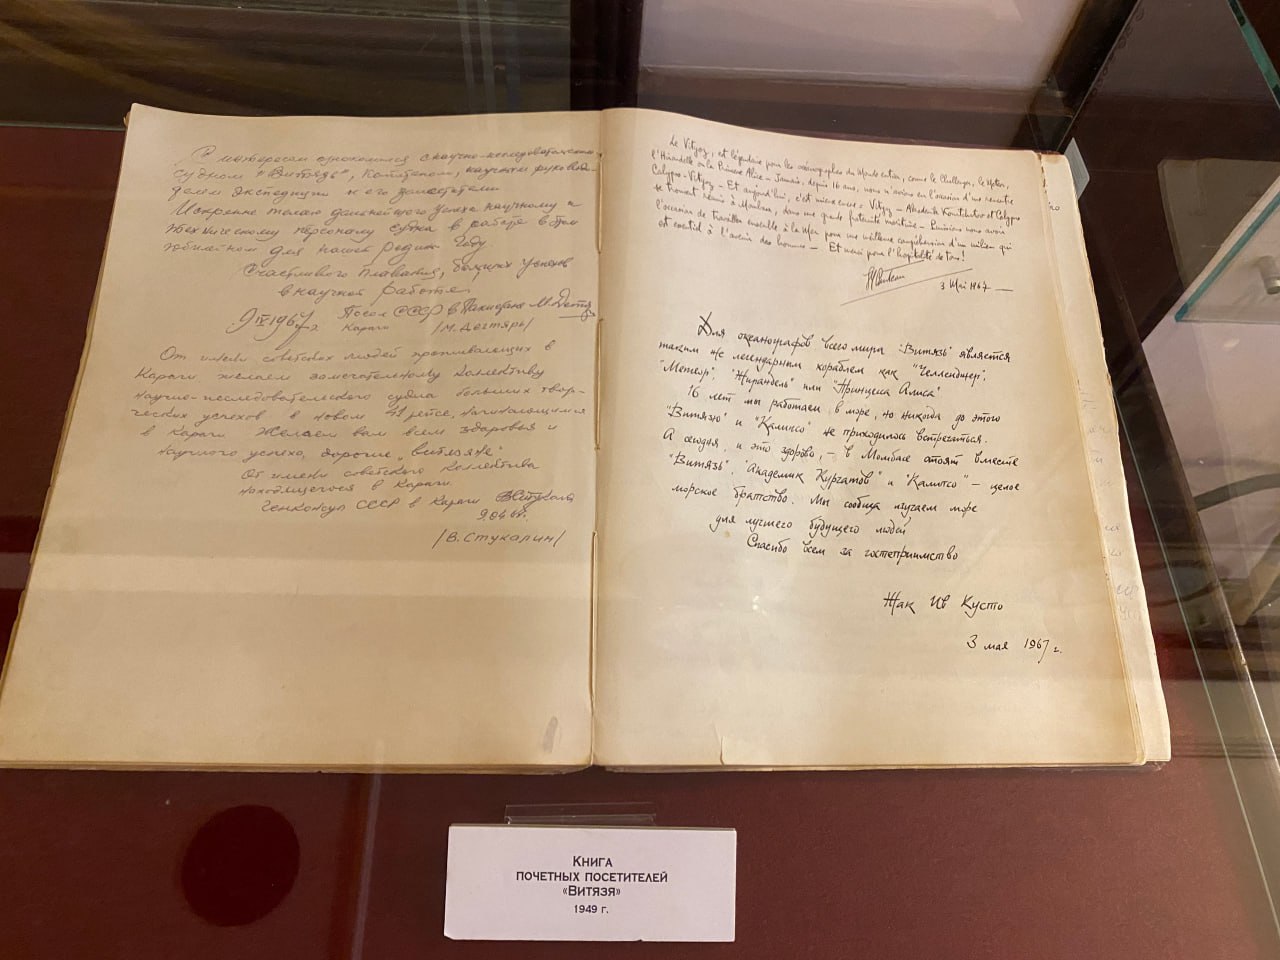 С интересом ознакомился с научно-исследовательским
судном "Витязь", капитаном, научным руково-
дителем экспедиции и его заместителями
Искренне желаю дальнейшего успеха научному и
техническому персоналу судна в работе в этом
юбилейном для нашей Родины году.
Счастливого плавания, больших успехов
в научной работе.
9 IV 1967 г. Посол СССР в Пакистане М. Дегтярь
Карачи /М. Дегтярь/
От имени советских людей проживающих в
Карачи желаем замечательному коллективу
научно-исследовательского судна больших твор-
ческих успехов в новом 41 рейсе, начинающимся
в Карачи. Желаем вам всем здоровья и
научного успеха, дорогие "витязяне"
От имени советского коллектива
находящегося в Карачи
Генконсул СССР в Карачи
9.04.67г.
/В. Стукалин/
Le Vityaz, est légendaire pour les océanographes du Monde entier, comme le Challenger, le Meteor,
l'Hirondelle ou la Princesse Alice – Jamais, depuis 16 ans, nous n'avions eu l'occasion d'une rencontre
Calypso-Vityaz – Et aujourd'hui, c'est mieux encore : Vityaz – Akademik Kurchatov et Calypso
se trouvent réunis à Mombasa, dans une grande fraternité maritime – Puissions nous avoir
l'occasion de travailler ensemble à la Mer pour une meilleure compréhension d'un milieu qui
est essentiel à l'avenir des hommes – Et merci pour l'hospitalité de tous!
3 Mai 1967 —
Для океанографов всего мира "Витязь" является
таким же легендарным кораблем как "Челленджер",
"Метеор", "Жирандель" или "Принцесса Алиса"
16 лет мы работаем в море, но никогда до этого
"Витязю" и "Калипсо" не приходилось встречаться.
А сегодня, и это здорово, – в Момбасе стоят вместе
"Витязь", "Академик Курчатов" и "Калипсо" – целое
морское братство. Мы сообща изучаем море
для лучшего будущего людей
Спасибо всем за гостеприимство
Жак Ив Кусто
3 мая 1967 г.
Книга
почетных посетителей
«Витязя»
1949 г.